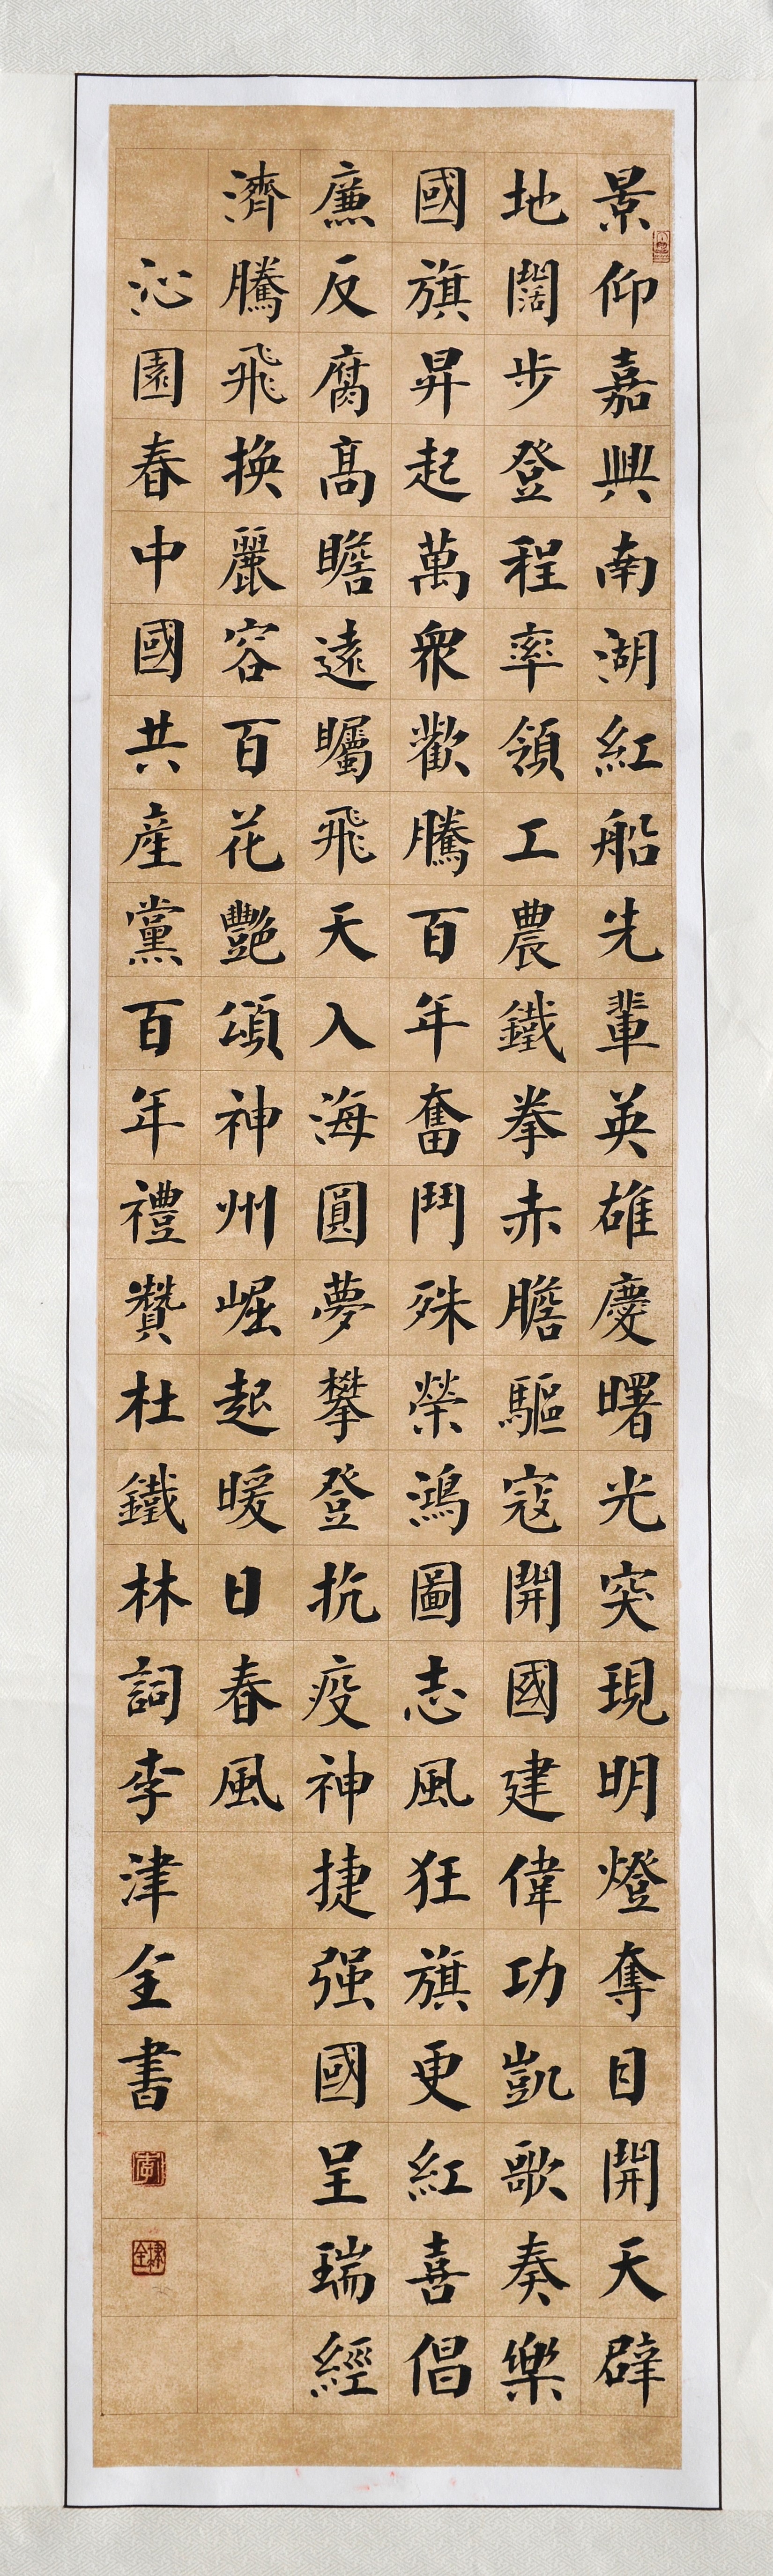 景仰嘉興南湖紅船先輩英雄慶曙光突現明燈奪目開天辟
地闊步登程率領工農鐵拳赤膽驅寇開國建偉功凱歌奏樂
國旗昇起萬衆歡騰百年奮鬥殊榮鴻圖志風狂旗更紅喜倡
廉反腐高瞻遠矚飛天入海圓夢攀登抗疫神捷强國呈瑞經
濟騰飛換麗容百花艷頌神州崛起暖日春風
沁園春中國共産黨百年禮贊杜鐵林詞李津全書